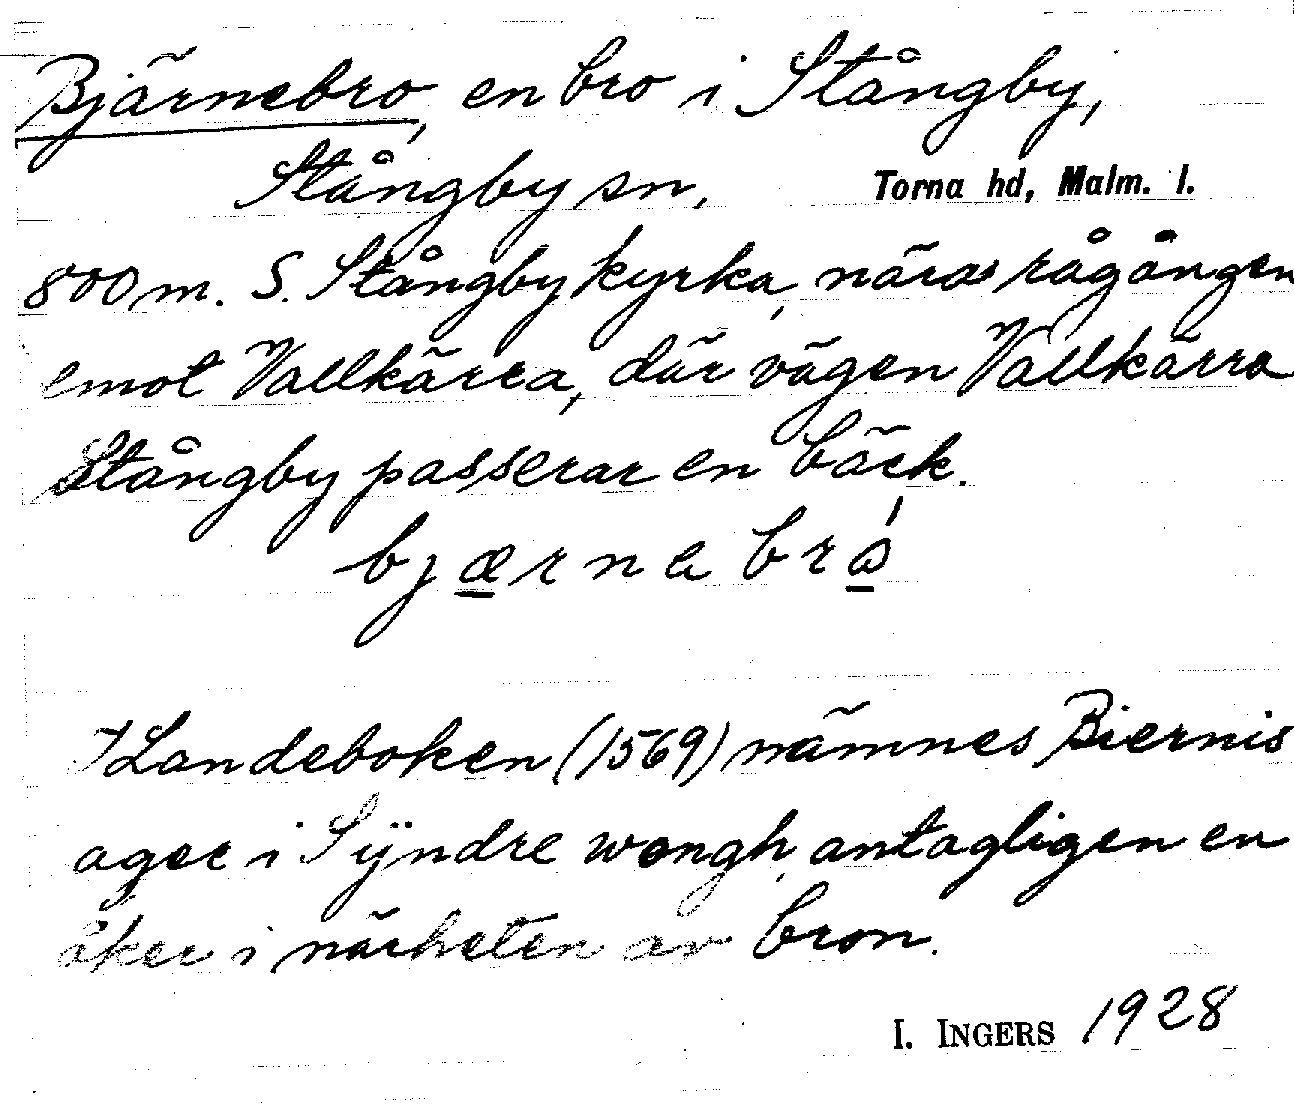 Bjärnebro, en bro i Stångby,
Stångby sn, Torna hd, Malm. l.
800 m. S. Stångby kyrka, nära rågången
emot Vallkärra, där vägen Vallkärra
Stångby passerar en bäck.
bjærnebró
I Landeboken (1569) nämnes Biernis
ager i Sÿndre wongh, antagligen en
åker i närheten av bron.
I. INGERS 1928